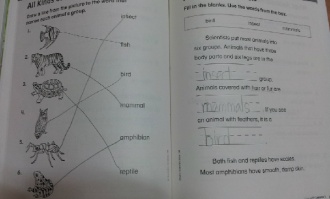 All Kinds
Draw a line from the picture to the word that
names each animal's group.
1.
insect
fish
2.
bird
3.
mammal
4.
5.
amphibian
6.
reptile
Fill in the blanks. Use the words from the box.
bird insect mammals
Scientists put most animals into
six groups. Animals that have three
body parts and six legs are in the
insect group.
Animals covered with hair or fur are
mammals. If you see
an animal with feathers, it is a
bird
Both fish and reptiles have scales.
Most amphibians have smooth, moist skin.